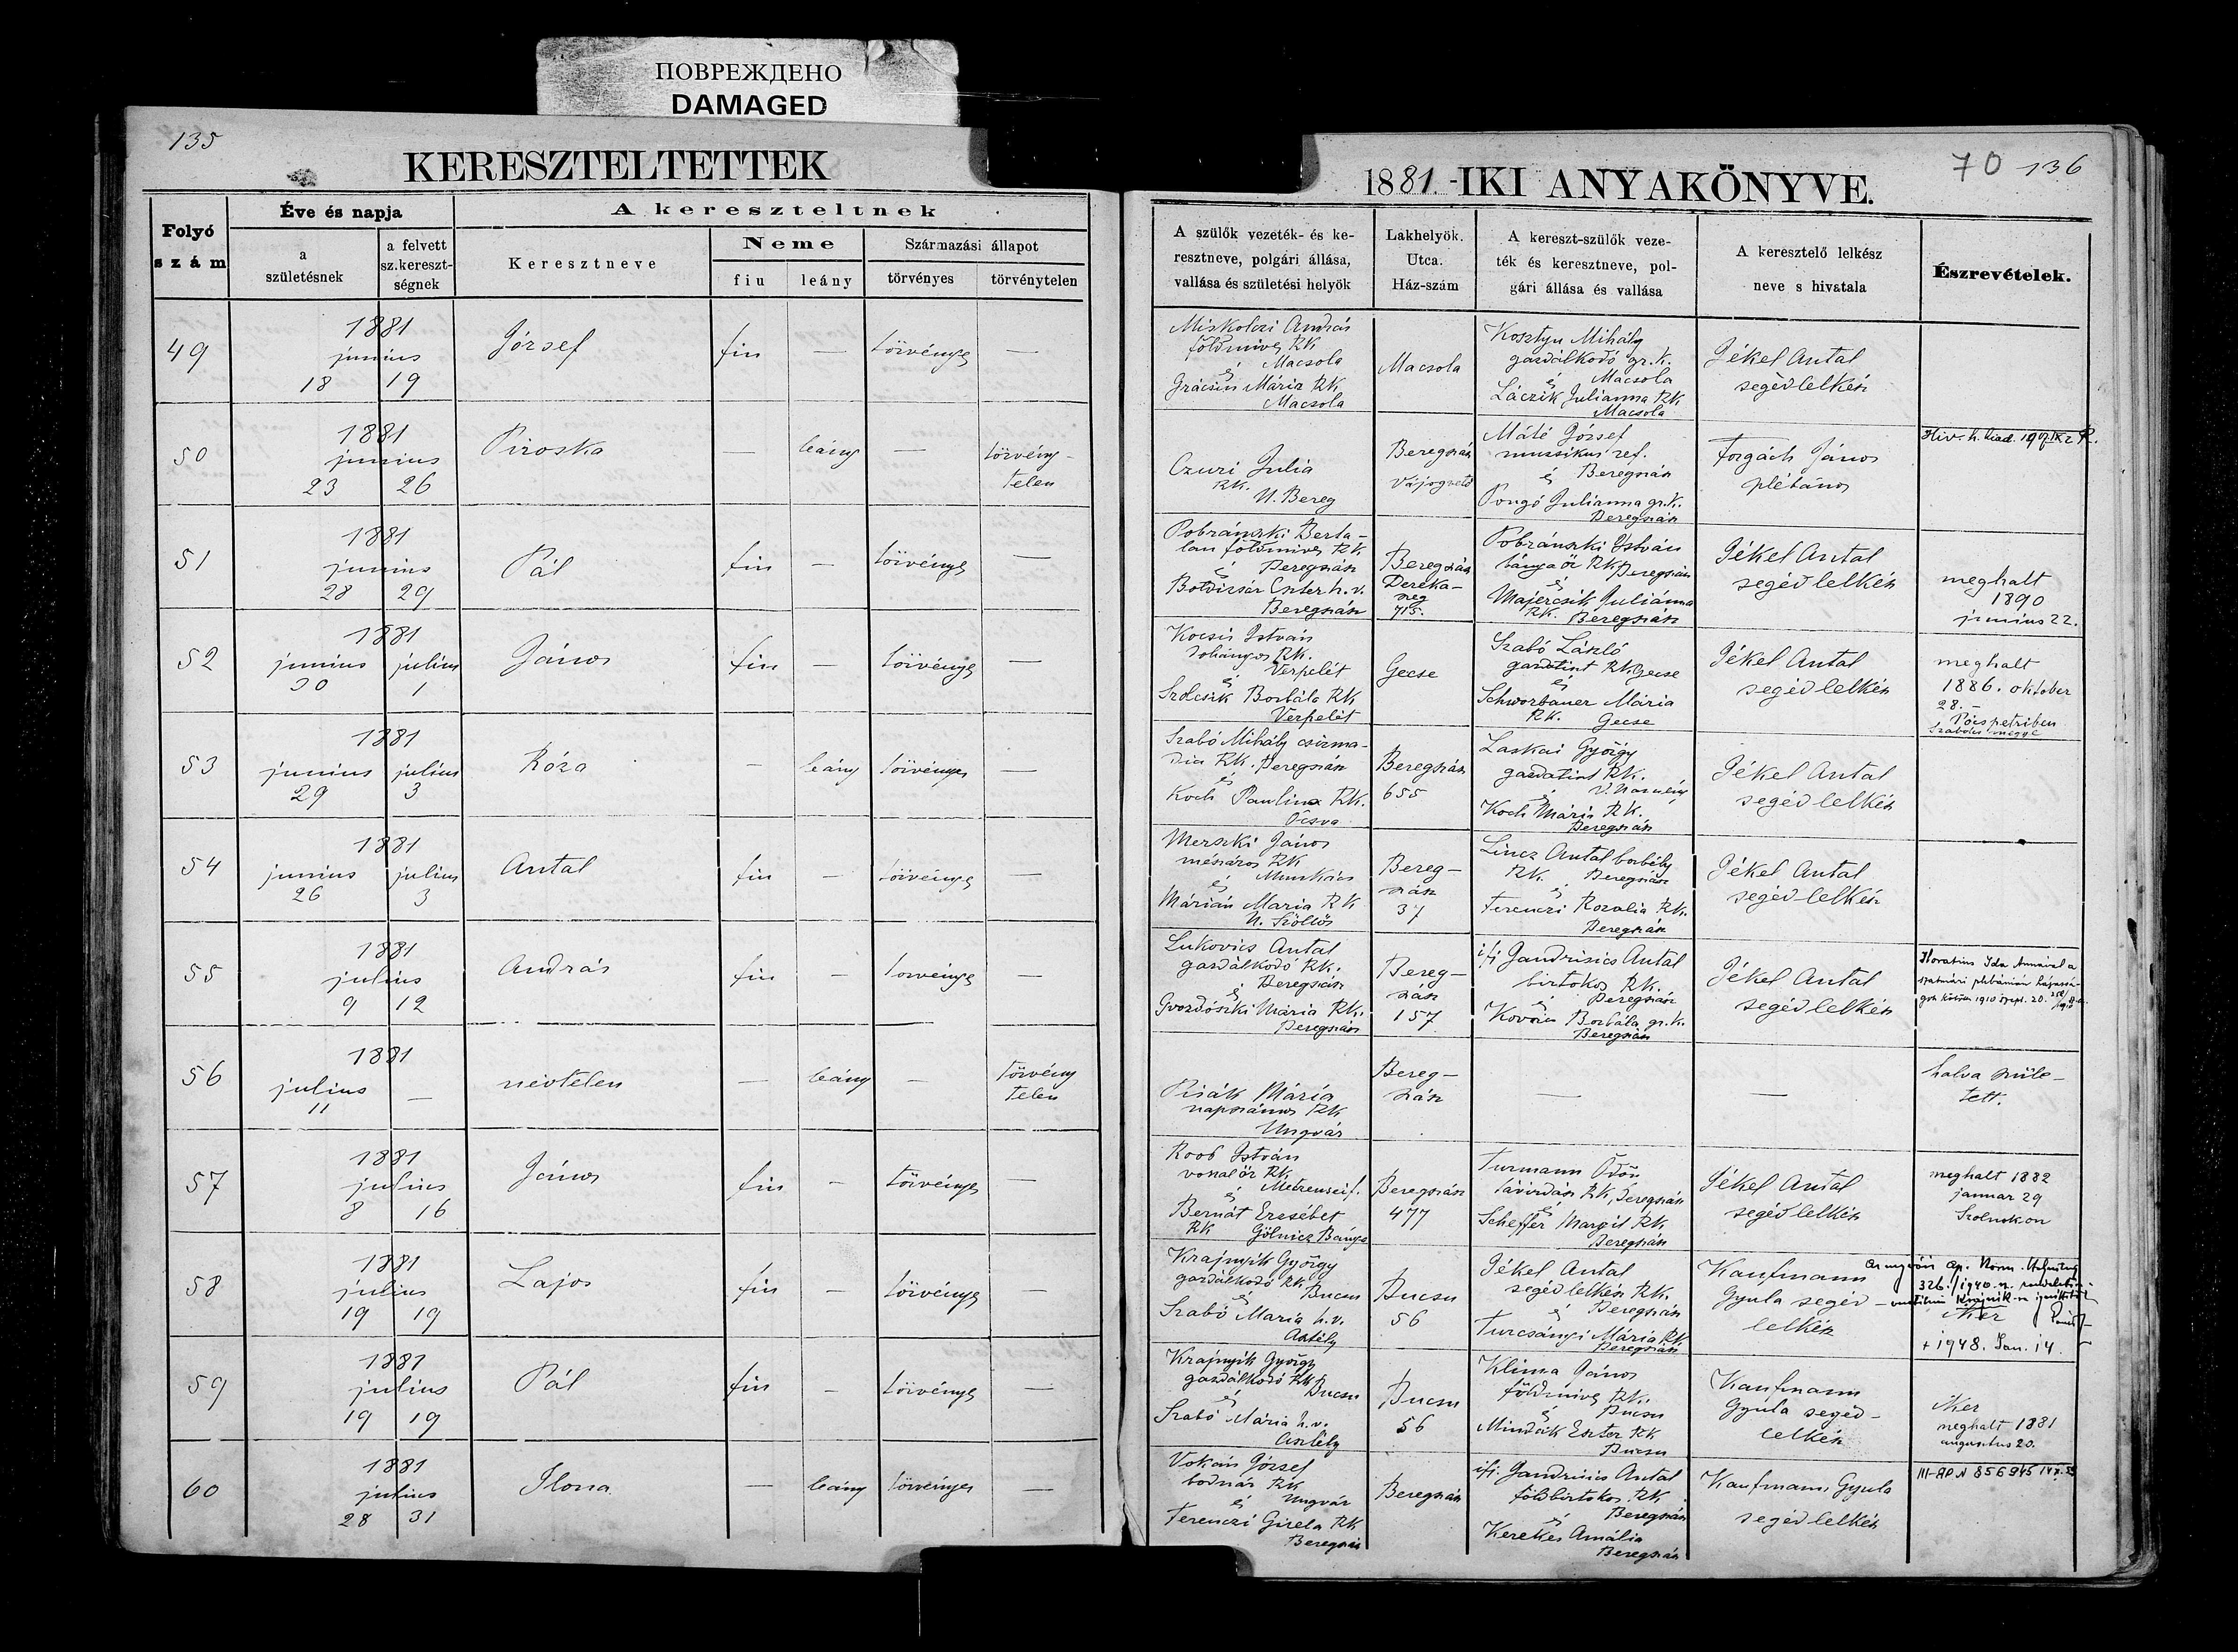 ПОВРЕЖДЕНО
DAMAGED
135
KERESZTELTETTEK
Folyó szám
Éve és napja
a születésnek
a felvett sz.kereszt-ségnek
A kereszteltnek
Keresztneve
Neme
fiu
leány
Származási állapot
törvényes
törvénytelen
49
1881
junius
18 19
József
fiu — törvényes —
50
1881
junius
23 26
Piroska
— leány — törvény-
telen
51
1881
junius
28 29
Pál
fiu — törvényes —
52
1881
junius julius
30 1
János
fiu — törvényes —
53
1881
junius julius
29 3
Róza
— leány törvényes —
54
1881
junius julius
26 3
Antal
fiu — törvényes —
55
1881
julius
9 12
András
fiu — törvényes —
56
1881
julius —
11
névtelen
— leány — törvény
telen
57
1881
julius
8 16
János
fiu — törvényes —
58
1881
julius
19 19
Lajos
fiu — törvényes —
59
1881
julius
19 19
Pál
fiu — törvényes —
60
1881
julius
28 31
Ilona
— leány törvényes —
1881.-IKI ANYAKÖNYVE.
70 136
A szülők vezeték- és ke-
resztneve, polgári állása,
vallása és születési helyök
Lakhelyök.
Utca.
Ház-szám
A kereszt-szülők veze-
ték és keresztneve, pol-
gári állása és vallása
A keresztelő lelkész
neve s hivatala
Észrevételek.
Miskolczi András
földmives RK
Macsola
és
Grácsin Mária RK
Macsola
Macsola
Kosztyu Mihály
gazdálkodó gr. k.
és Macsola
Láczik Julianna RK
Macsola
Jékel Antal
segédlelkész
Czuri Julia
RK.
N. Bereg
Beregszász
Vájogvető
Máté József
muzsikus ref.
és Beregszász
Pongó Julianna gr. k.
Beregszász
Forgách János
plébános
Pobránszki Berta-
lan földmives RK
és Beregszász
Boldizsár Eszter h. v.
Beregszász
Beregszász
Dereka-
szeg
715.
Pobránszki István
bányaőr RK Beregszász
és
Majercsik Juliánna
RK. Beregszász
Jékel Antal
segédlelkész
meghalt
1890
junius 22.
Kocsis István
dohányos RK.
Verpelét
és
Szolcsik Borbála RK
Verpelét
Gecse
Szabó László
gazdatiszt RK Gecse
és
Schworbauer Mária
RK. Gecse
Jékel Antal
segédlelkész
meghalt
1886. oktober
28. –
Pócspetriben
Szabolcs megye
Szabó Mihály csizma-
dia RK. Beregszász
és
Koch Paulina RK.
Beregszász
655
Laskai György
gazdatiszt RK.
és V. Namény
Koch Mária RK.
Beregszász
Jékel Antal
segédlelkész
Merszki János
mészáros RK
és Munkács
Márián Maria RK
N. Szöllös
Bereg-
szász
37
Lincz Antal borbély
RK. Beregszász
és
Ferenczi Rozalia RK.
Beregszász
Jékel Antal
segédlelkész
Lukovics Antal
gazdálkodó RK.
és Beregszász
Gvozdószki Mária RK.
Beregszász
Bereg-
szász
157
ifj. Gandrisics Antal
birtokos RK.
és Beregszász
Kovács Borbála gr. k.
Beregszász
Jékel Antal
segédlelkész
Pisák Mária
napszámos RK
Ungvár
Bereg-
szász
—
—
halva szüle-
tett.
Roob István
vonalőr RK
és Metzenseif.
Bernát Erzsébet
RK Gölnicz Bánya
Beregszász
477
Turmann Ödön
távirdász RK, Beregszász
és
Scheffer Margit RK
Beregszász
Jékel Antal
segédlelkész
meghalt 1882
januar 29
Szolnokon
Krajnyik György
gazdálkodó RK
és Bucsu
Szabó Maria h. v.
Asztély
Bucsu
56
Jékel Antal
segédlelkész RK.
és Beregszász
Turcsányi Mária RK
Beregszász
Kaufmann
Gyula segéd-
lelkész
Iker
+ 1948. Jan. 14.
Krajnyik György
gazdálkodó RK
és Bucsu
Szabó Mária h. v.
Asztély
Bucsu
56
Klima János
földmives RK.
és Bucsu
Mindák Eszter RK
Bucsu
Kaufmann
Gyula segéd-
lelkész
Iker
meghalt 1881
augusztus 20.
Vokán József
bodnár RK
és Ungvár
Ferenczi Gizela RK
Beregszász
Beregszász
ifj. Gandrisics Antal
földbirtokos RK.
és Beregszász
Kerekes Amália
Beregszász
Kaufmann Gyula
segédlelkész